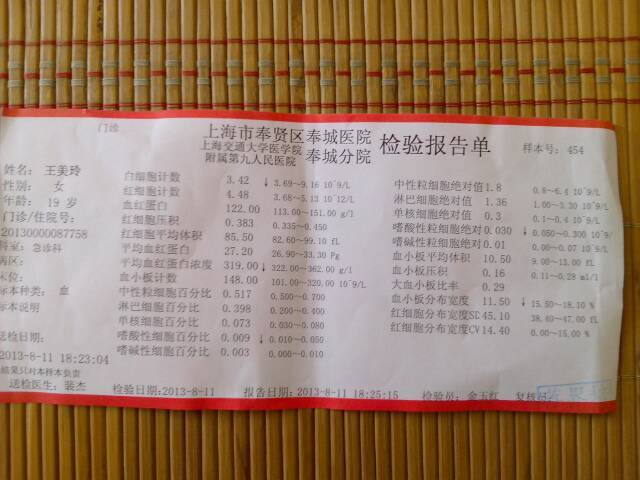 门诊
上海市奉贤区奉城医院
上海交通大学医学院
附属第九人民医院 奉城分院
检验报告单
样本号: 454
姓名: 王美玲
性别: 女
年龄: 19 岁
门诊/住院号:
20130000087758
科室: 急诊科
病区:
床位:
标本种类: 血
标本说明
送检日期:
2013-8-11 18:23:04
白细胞计数 3.42 ↓ 3.69~9.16 10^9/L
红细胞计数 4.48 3.68~5.13 10^12/L
血红蛋白 122.00 113.00~151.00 g/l
红细胞压积 0.383 0.335~0.450
红细胞平均体积 85.50 82.60~99.10 fL
平均血红蛋白 27.20 26.90~33.30 Pg
平均血红蛋白浓度 319.00 ↓ 322.00~362.00 g/l
血小板计数 148.00 101.00~320.00 10^9/L
中性粒细胞百分比 0.517 0.500~0.700
淋巴细胞百分比 0.398 0.200~0.400
单核细胞百分比 0.073 0.030~0.080
嗜酸性细胞百分比 0.009 ↓ 0.010~0.050
嗜碱性细胞百分比 0.003 0.000~0.010
中性粒细胞绝对值 1.8 0.8~6.4 10^9/L
淋巴细胞绝对值 1.36 1.00~3.30 10^9/L
单核细胞绝对值 0.3 0.1~0.4 10^9/L
嗜酸性粒细胞绝对 0.030 ↓ 0.050~0.300 10^9/L
嗜碱性粒细胞绝对 0.01 0.00~0.07 10^9/L
血小板平均体积 10.50 9.00~13.00 fL
血小板压积 0.16 0.11~0.28 ml/l
大血小板比率 0.29
血小板分布宽度 11.50 ↓ 15.50~18.10 %
红细胞分布宽度SD 45.10 38.40~47.00 fL
红细胞分布宽度CV 14.40 0.00~15.00 %
结果只对本样本负责
送检医生: 裴杰 检验日期:2013-8-11 报告日期:2013-8-11 18:25:15 检验员: 金玉红 复核